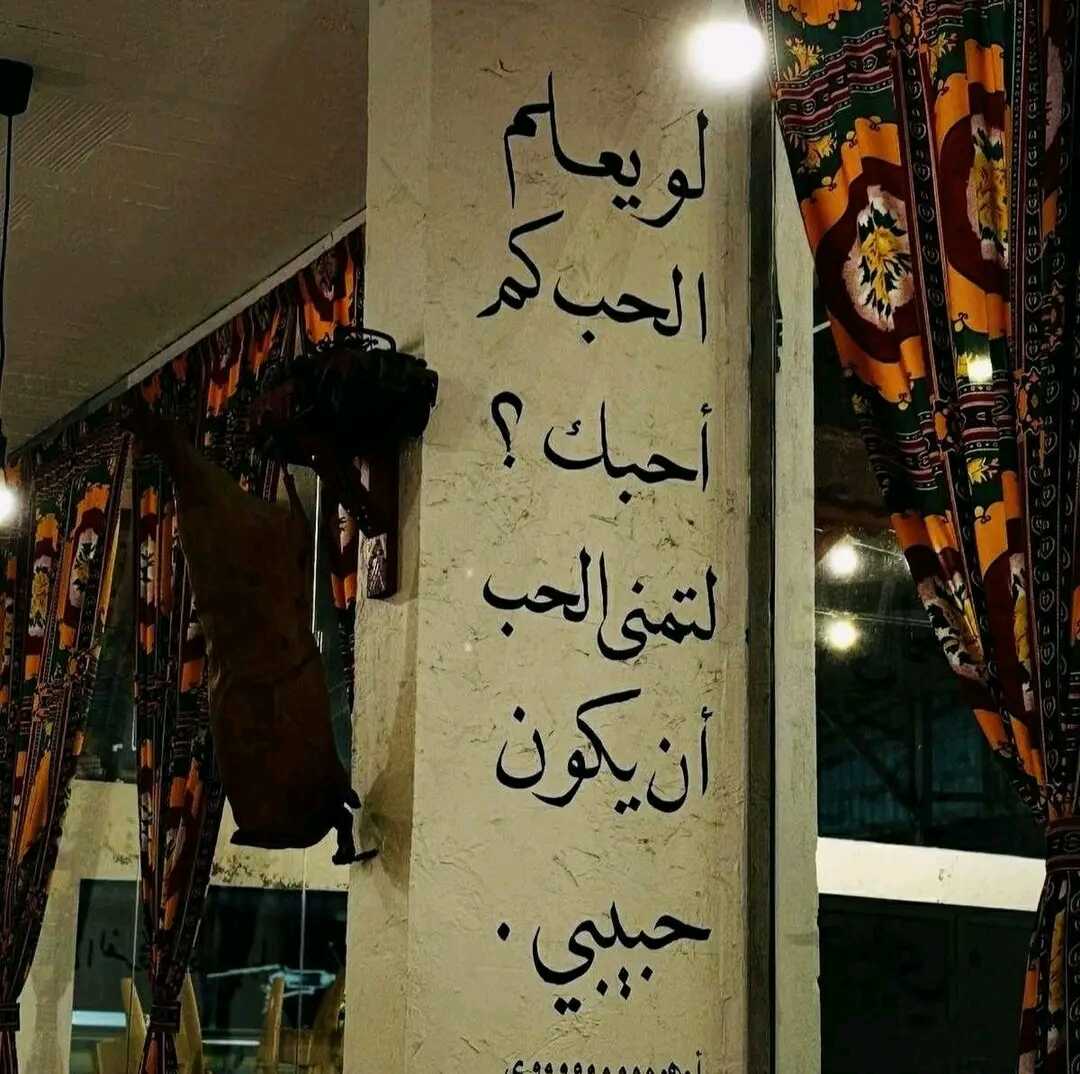 لو يعلم
الحب كم
أحبك ؟
لتمنى الحب
أن يكون
حبيبي .